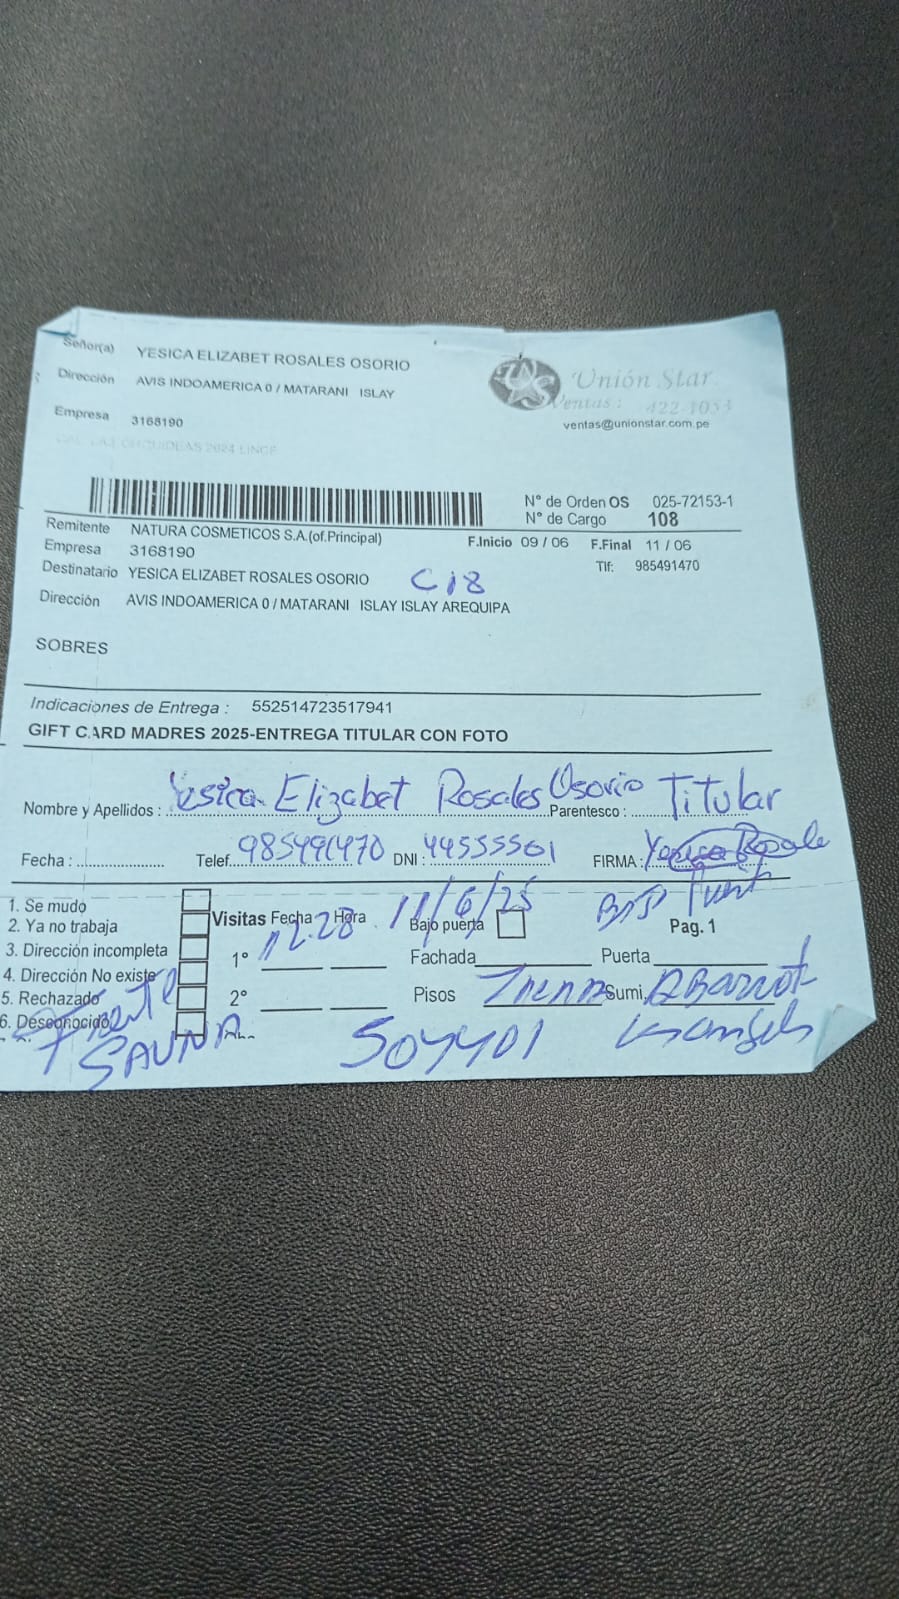 Señor(a) YESICA ELIZABET ROSALES OSORIO
Dirección AVIS INDOAMERICA 0 / MATARANI ISLAY
Empresa 3168190
Unión Star
Ventas : 422-1053
ventas@unionstar.com.pe
ORQUIDEAS 2624 LINCE
N° de Orden OS 025-72153-1
N° de Cargo 108
Remitente NATURA COSMETICOS S.A.(of.Principal)
F.Inicio 09 / 06 F.Final 11 / 06
Empresa 3168190
Tlf: 985491470
Destinatario YESICA ELIZABET ROSALES OSORIO
Dirección AVIS INDOAMERICA 0 / MATARANI ISLAY ISLAY AREQUIPA
SOBRES
Indicaciones de Entrega : 552514723517941
GIFT CARD MADRES 2025-ENTREGA TITULAR CON FOTO
Nombre y Apellidos : Yesica Elizabet Rosales Osorio Parentesco : Titular
Fecha : Telef. 985491470 DNI : 44555501 FIRMA :
1. Se mudo
2. Ya no trabaja
3. Dirección incompleta
4. Dirección No existe
5. Rechazado
6. Desconocido
Visitas Fecha Hora 11/6/25
12.28
Bajo puerta
Pag. 1
1° Fachada Puerta
2° Pisos Sumi.
Frente
SAUNA